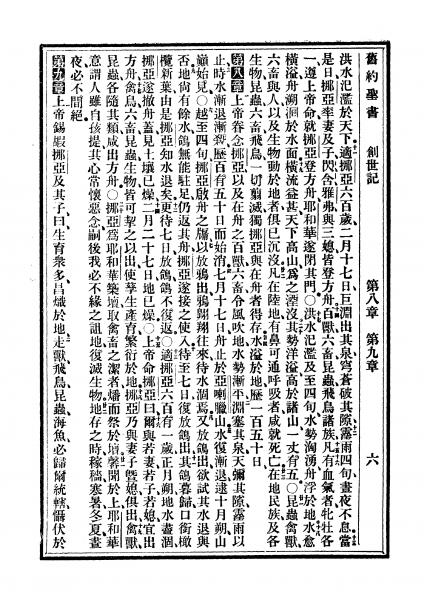 舊約聖書 創世記 第八章 第九章 六
洪水氾濫於天下適挪亞六百歲二月十七日巨淵出其泉穹蒼破其隙霧雨四旬晝夜不息當
是日挪亞率妻及子閃含雅弗與三媳皆登方舟百獸六畜昆蟲飛鳥諸族凡有血氣者牝牡各
一遵上帝命就挪亞登方舟耶和華遂閉其門〇洪水氾濫及至四旬水勢洶湧舟浮於地水愈
橫溢舟溯洄於水面橫流益甚天下高山爲之湮沒其勢洋溢高於諸山一丈有五〇昆蟲禽獸
六畜與人以及生物動於地者俱已沉沒凡在陸地有鼻可通呼吸者咸就死亡在地民族及各
生物昆蟲六畜飛鳥一切翦滅獨挪亞與在舟者得存水溢於地歷一百五十日
第八章上帝眷念挪亞以及在舟之百獸六畜令風吹地水勢漸平淵塞其泉天彌其隙霧雨以
止時水漸退漸瀝歷百有五十日而始消七月十七日舟止於亞喇臘山水復漸退逮十月朔山
巔始見〇越至四旬挪亞啟舟之牖以放鴉出鴉翱翔往來待水涸焉又放鴿出欲試其水退與
否地尚有餘水鴿無能駐足仍返其舟挪亞遂接之使入待至七日復放鴿出其鴿暮歸口銜橄
欖新葉由是挪亞知水退矣更待七日放鴿鴿不復返〇適挪亞六百有一歲正月朔地水盡涸
挪亞遂撤舟蓋見土壤已燥二月二十七日地已燥〇上帝命挪亞曰爾與若妻若子若媳宜出
方舟禽鳥六畜昆蟲生物皆可挈之以出使孳生產育繁衍於地挪亞乃與妻子曁媳俱出禽獸
昆蟲各隨其類咸出方舟〇挪亞爲耶和華築壇取禽畜之潔者燔而祭於壇馨聞於上耶和華
意謂人雖自孩提其心常懷惡念嗣後我必不緣之詛地復滅生物地存之時稼穡寒暑冬夏晝
夜必不間絕
第九章上帝錫嘏挪亞及其子曰生育衆多昌熾於地走獸飛鳥昆蟲海魚必歸爾統轄懾伏於